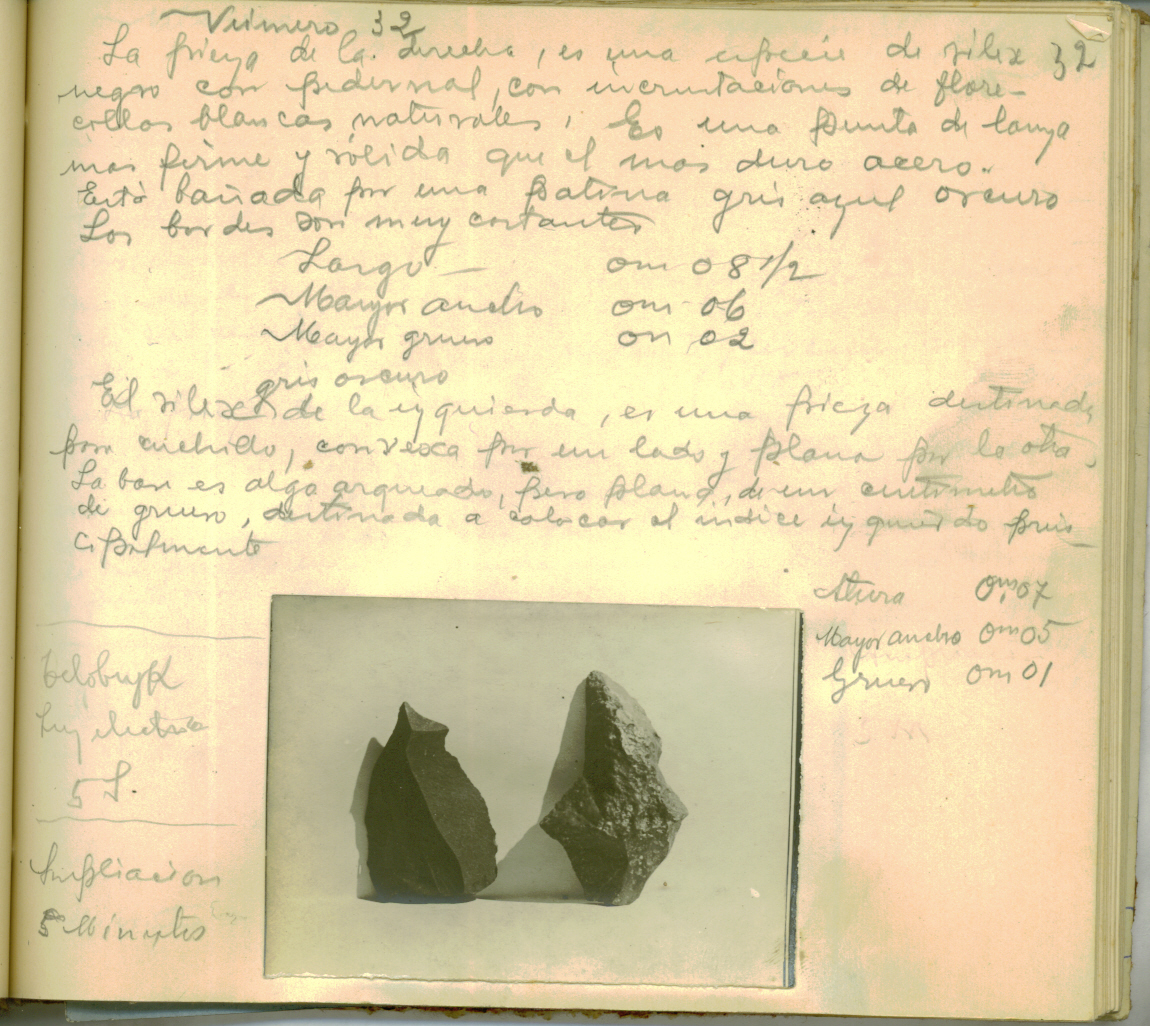 Número 32
32
La pieza de la derecha, es una especie de silex
negro con pedernal, con incrustaciones de flore-
cillas blancas naturales. Es una punta de lanza
mas firme y sólida que el mas duro acero.
Está bañada por una patina gris azul oscuro
Los bordes son muy cortantes
Largo — 0m 08 1/2
Mayor ancho 0m 06
Mayor grueso 0m 02
gris oscuro
El silex de la izquierda, es una pieza destinada
para cuchillo, convexa por un lado y plana por la otra.
La base es algo arqueada, pero plana, de un centimetro
de grueso, destinada a colocar el indice izquierdo prin-
cipalmente
Altura 0m,07
Mayor ancho 0m 05
Grueso 0m 01
Luz electrica
5 S.
Ampliacion
5 Minutos